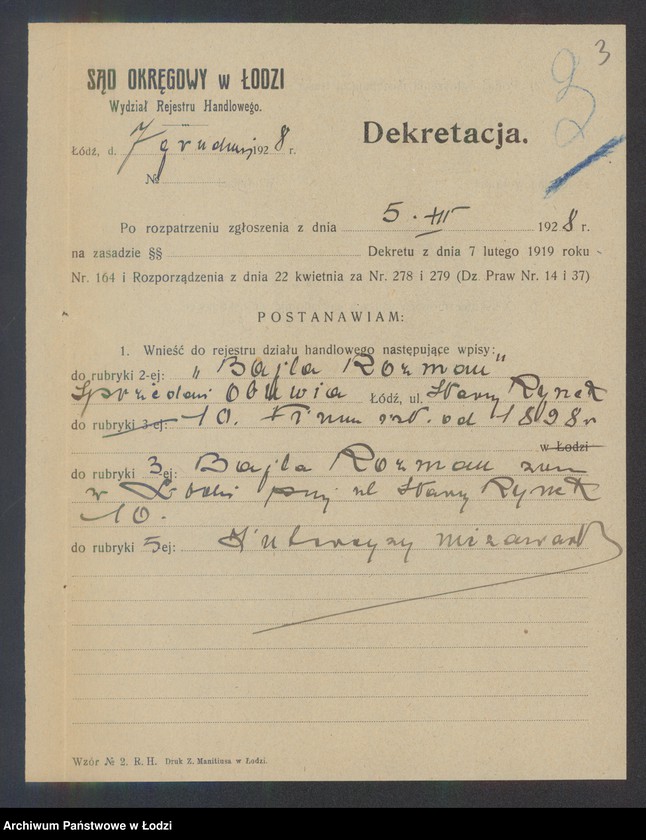 3
2
SĄD OKRĘGOWY w ŁODZI
Wydział Rejestru Handlowego.
Dekretacja.
Łódź, d. 7 grudnia 1928 r.
№
Po rozpatrzeniu zgłoszenia z dnia 5. XII 1928 r.
na zasadzie §§ Dekretu z dnia 7 lutego 1919 roku
Nr. 164 i Rozporządzenia z dnia 22 kwietnia za Nr. 278 i 279 (Dz. Praw Nr. 14 i 37)
POSTANAWIAM:
1. Wnieść do rejestru działu handlowego następujące wpisy:
do rubryki 2-ej: „Bajla Rozman"
Sprzedaż obuwia Łódź, ul. Stary Rynek
do rubryki 3-ej: 10. Firma istn. od 1898 r
w Łodzi
do rubryki 3-ej: Bajla Rozman zam
w Łodzi przy ul Stary Rynek
10.
do rubryki 5ej: Intercyzy nie zawarł
Wzór № 2. R. H. Druk Z. Manitiusa w Łodzi.
Archiwum Państwowe w Łodzi